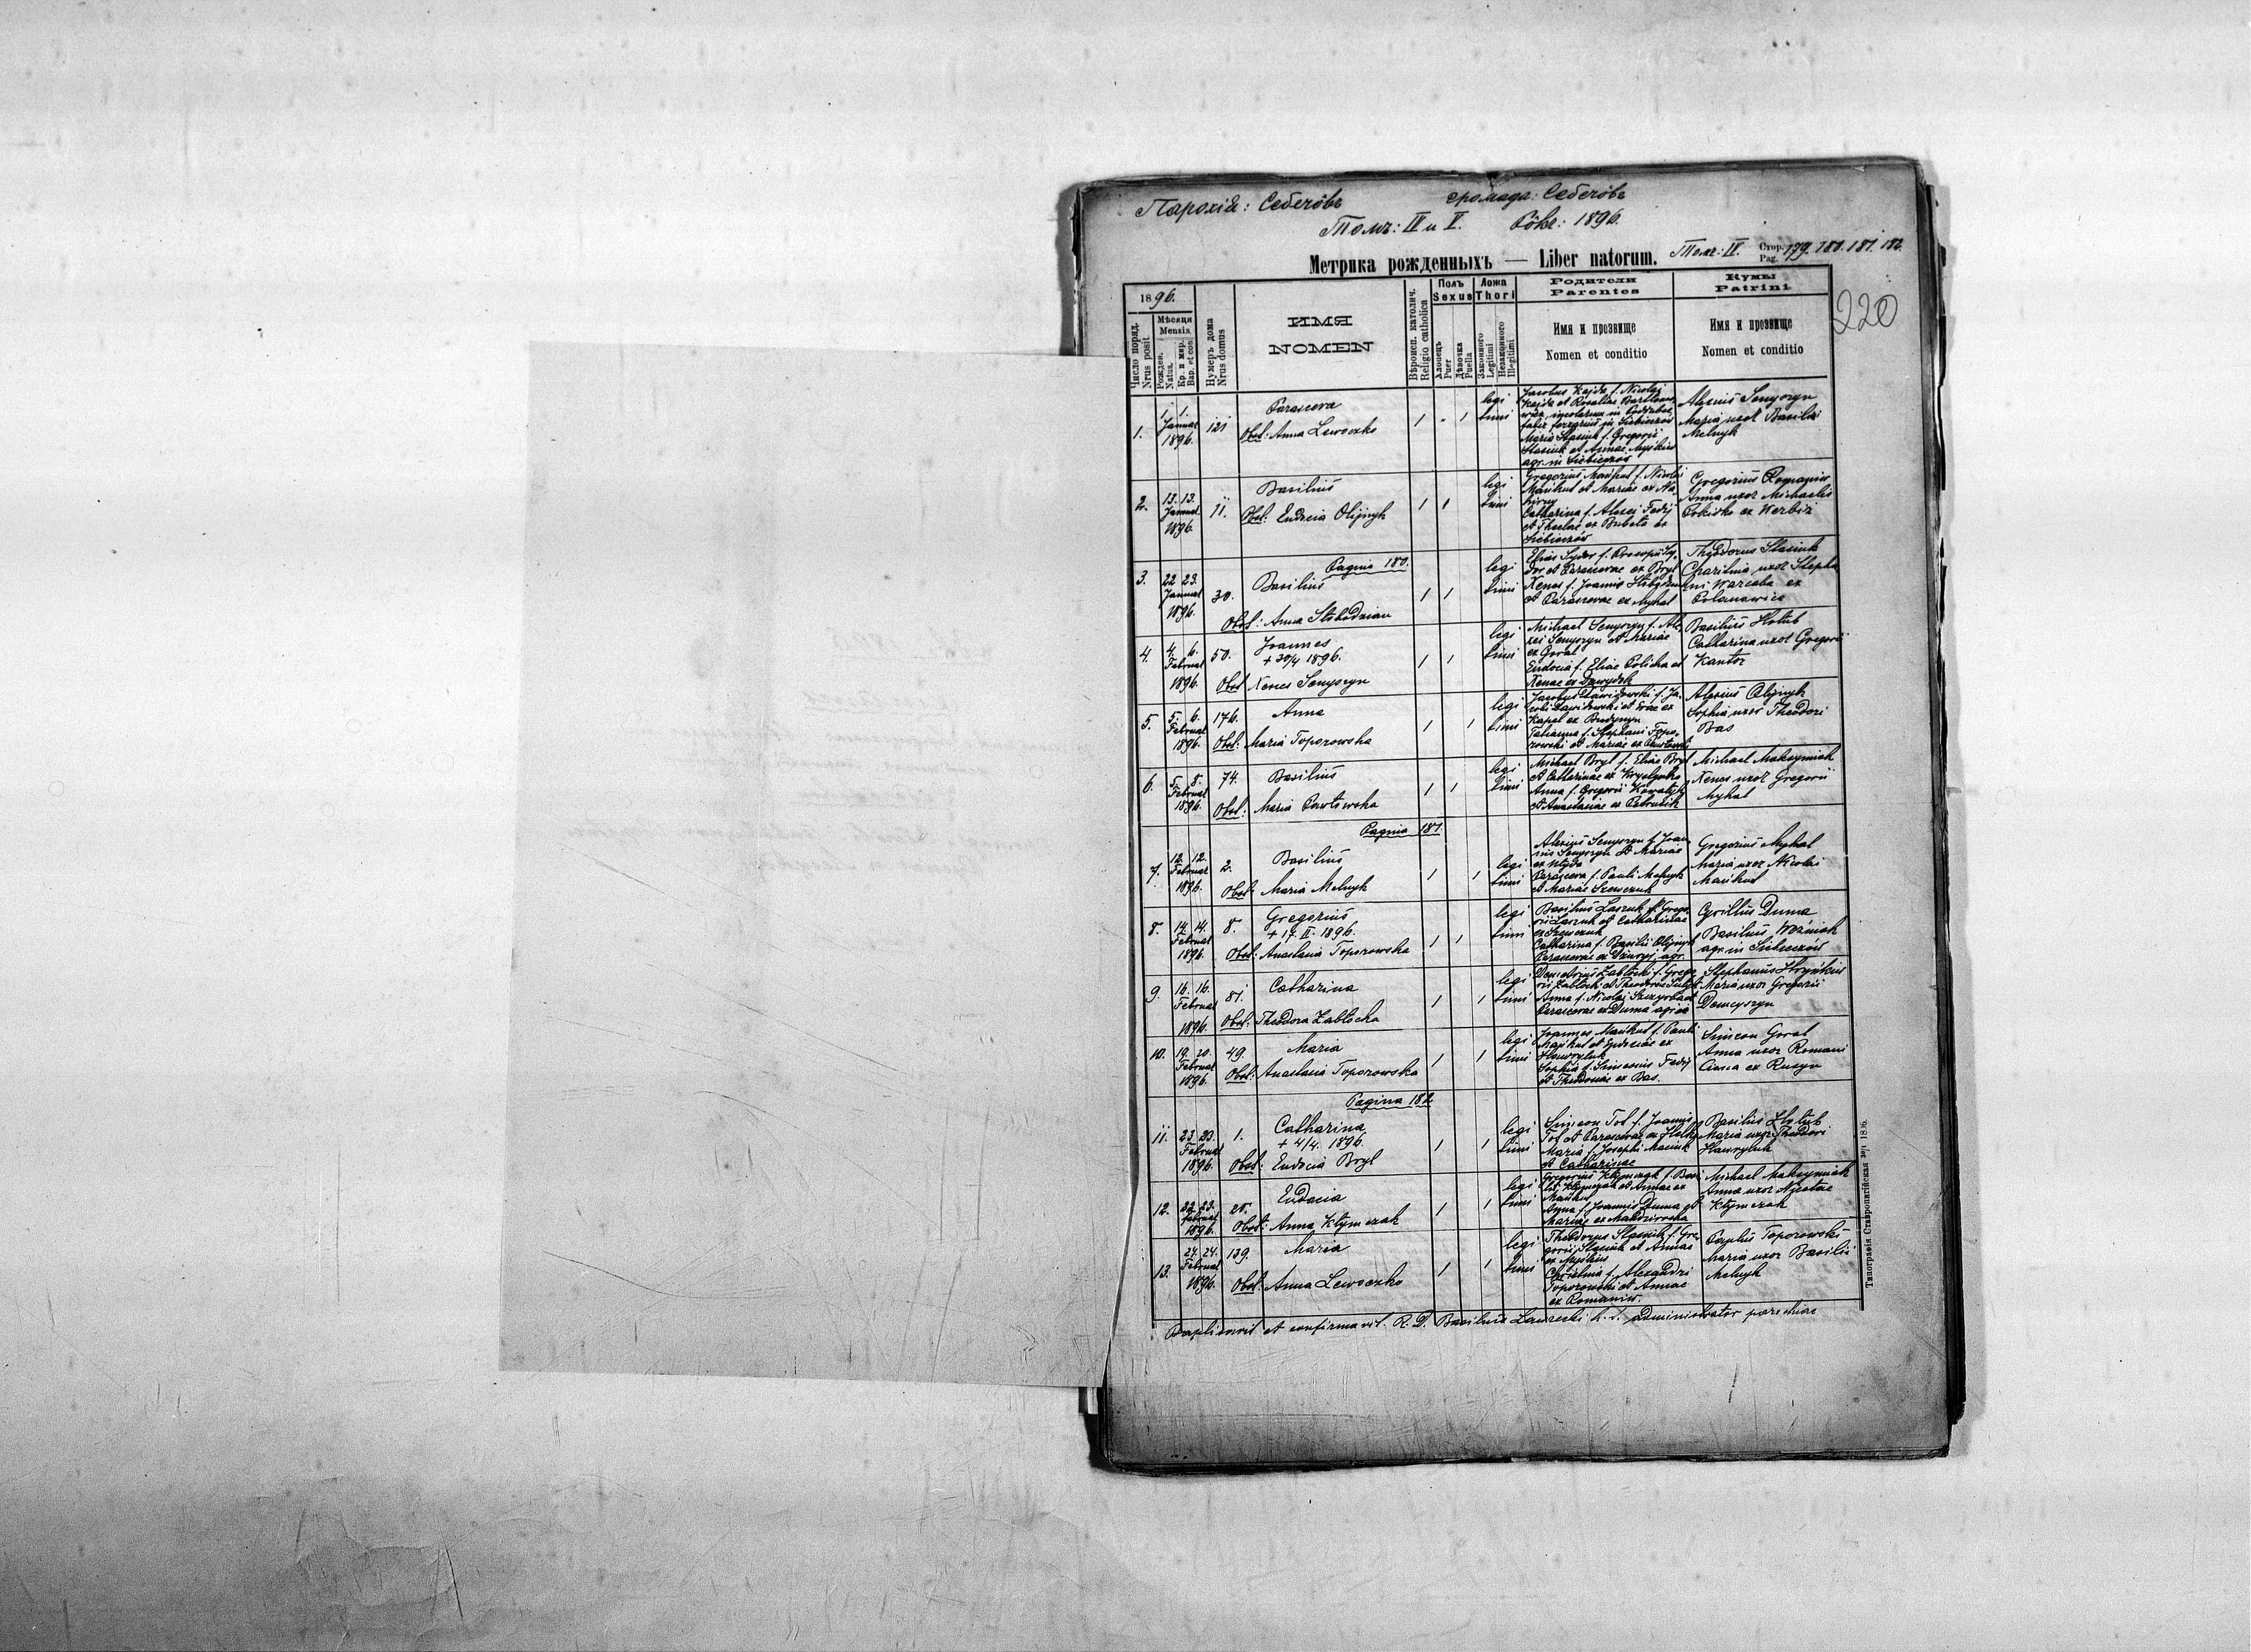 Парохія: Себечôвъ громада: Себечôвъ
Томъ: IV и V. Рôкъ: 1896.
Метрика рожденныхъ — Liber natorum. Томъ: IV. Стор. Pag. 179. 180. 181. 182.
220
1896.
Число поряд. Nrus posit.
Мѣсяця Mensis
Рожден. Natus.
Кр. и мѵр. Bap. et con.
Нумеръ дома Nrus domus
ИМЯ
NOMEN
Вѣроисп. католич. Religio catholica
Полъ Sexus
Хлопецъ Puer
Дѣвочка Puella
Ложа Thori
Законного Legitimi
Незаконного Illegitimi
Родители Parentes
Имя и прозвище
Nomen et conditio
Кумы Patrini
Имя и прозвище
Nomen et conditio
1. 1. 1. Januar 1896. 121
Parasceva
Obst: Anna Lewoczko
1 1 legitimi
Jacobus Kajda f. Nicolai
Kajda et Rosaliae
Maria Stasiuk f. Gregorii
Stasiuk et Annae
agr. in Siebieczów
Alexius Senyszyn
Maria uxor Basilii
Melnyk
2. 13. 13. Januar 1896. 11.
Basilius
Obst: Eudocia Olijnyk
1 1 legitimi
Gregorius Mańkut f. Nicolai
Mańkut et Mariae ex
Catharina f. Alexii Fedij
et Theclae ex
Siebieczów
Gregorius Romaniw
Anna uxor Michaelis
ex Werbiż
Pagina 180.
3. 22. 23. Januar 1896. 30.
Basilius
Obst: Anna Stebodzian
1 1 legitimi
Elias Sydor f. Procopii Sydor
et Parascevae ex Bryl
Xenes f. Joannis
et Parascevae ex Myhal
Theodorus Stasiuk
Charitina uxor Stephani
Warcaba ex
Polanowice
4. 4. 6. Februar 1896. 50.
Joannes
+ 30/4 1896.
Obst Xenes Senyszyn
1 1 legitimi
Michael Senyszyn f. Alexii
Senyszyn et Mariae
ex Goral
Eudocia f. Eliae Policha et
Xenae ex Dawydek
Basilius Hołub
Catharina uxor Gregorii
Kantor
5. 5. 6. Februar 1896. 176.
Anna
Obst: Maria Toporowska
1 1 legitimi
Jacobus Dawidowski f. Jacobi
Dawidowski et Evae ex
Kapel ex Budynyn
Tatianna f. Stephani Toporowski
et Mariae ex
Alexius Olijnyk
Sophia uxor Theodori
Bas
6. 5. 8. Februar 1896. 74.
Basilius
Obst: Maria Pawłowska
1 1 legitimi
Michael Bryl f. Eliae Bryl
et Catharinae ex
Anna f. Gregorii
et Anastasiae ex Petruszk
Michael Maksymiak
Xenes uxor Gregorii
Myhal
Pagina 181.
7. 12. 12. Februar 1896. 2.
Basilius
Obst: Maria Melnyk
1 1 legitimi
Alexius Senyszyn f. Joannis
Senyszyn et Mariae
Parasceva f. Pauli Melnyk
et Mariae Szewczuk
Gregorius Myhal
Maria uxor Nicolai
Mańkut
8. 14. 14. Februar 1896. 8.
Gregorius
+ 17. II. 1896.
Obst: Anastasia Toporowska
1 1 legitimi
Basilius Laszuk f. Gregorii
Laszuk et Catharinae
ex Szewczuk
Catharina f. Basilii Olijnyk
Parascevae ex agr.
Cyrillus Duma
Basilius Woźniak
agr. in Siebieczów
9. 16. 16. Februar 1896. 81.
Catharina
Obst: Theodora Zabłocka
1 1 legitimi
Demetrius Zabłocki f. Gregorii
Zabłocki et Theodorae
Anna f. Nicolai Szczyrba et
Parascevae ex Duma
Stephanus
Maria uxor Gregorii
Demczyszyn
10. 19. 20. Februar 1896. 49.
Maria
Obst: Anastasia Toporowska
1 1 legitimi
Joannes Mańkut f. Pauli
Mańkut et Eudociae ex
Hawryluk
Sophia f. Simeonis Fedij
et Theodosiae ex Bas.
Simeon Goral
Anna uxor Romani
ex Rusyn
Pagina 182
11. 23. 23. Februar 1896. 1.
Catharina
+ 4/4. 1896.
Obst: Eudocia Bryl
1 1 legitimi
Simeon Tof f. Joannis
Tof et Parascevae ex
Maria f. Josephi Masiuk
et Catharinae
Basilius Hołub
Maria uxor Theodori
Hawryluk
12. 22. 23. Februar 1896. 25.
Eudocia
Obst: Anna Kłymczak
1 1 legitimi
Gregorius Kłymczak f. Basilii
Kłymczak et Annae ex
Mańkut
Anna f. Joannis Duma et
Mariae ex
Michael Maksymiak
Anna uxor Nicetae
Kłymczak
13. 24. 24. Februar 1896. 139.
Maria
Obst: Anna Lewoczko
1 1 legitimi
Theodorus Stasiuk f. Gregorii
Stasiuk et Annae
Christina f. Alexandri
Toporowski et Annae
ex Romaniw.
Paulus Toporowski
Maria uxor Basilii
Melnyk
Baptisavit et confirmavit R. D. Basilius Ławrecki h. t. Administrator parochiae
Типографія Ставропигійская